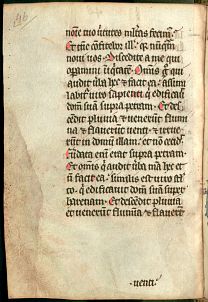 noīe tuo uirtutes multas fecim⁹
Et tūc cōfitebor ill' q̄ nūq̄m
noui uos · Discedite a me qui
opamini iniq̄tatē · Omīs g̊ qui
audit ūba hec et facit ea · assimi
labit̄ uiro sapienti q̄ edificauit
domū suā supra petram · Et des
cēdit pluuia & uenerūt flumi
na & flauerūt uenti · & irrue
rūt in domū illam · et nō cecid̄
fūdata enī erat supra petram ·
Et omīs q̄ audit ūba mea hec et
nō facit ea · similis est uiro stul
to · q̄ edificauit domū suā supra
harenam · Et descēdit pluuia
et uenerūt flumina & flauerūt
uenti ·